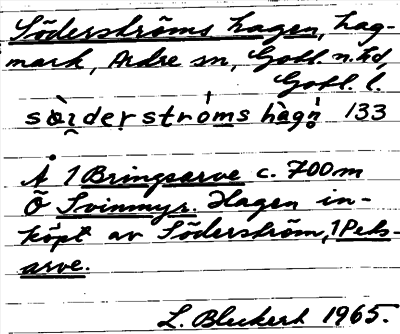 Söderströms hagen, hag-
mark, Ardre sn, Gotl. n. hd,
Gotl. l.
sö̀ıderströms hàgn̥ 133
Å 1 Bringsarve c. 700 m
Ö Svinmyr. Hagen in-
köpt av Söderström, 1 Pets-
arve.
L. Bleckert 1965.